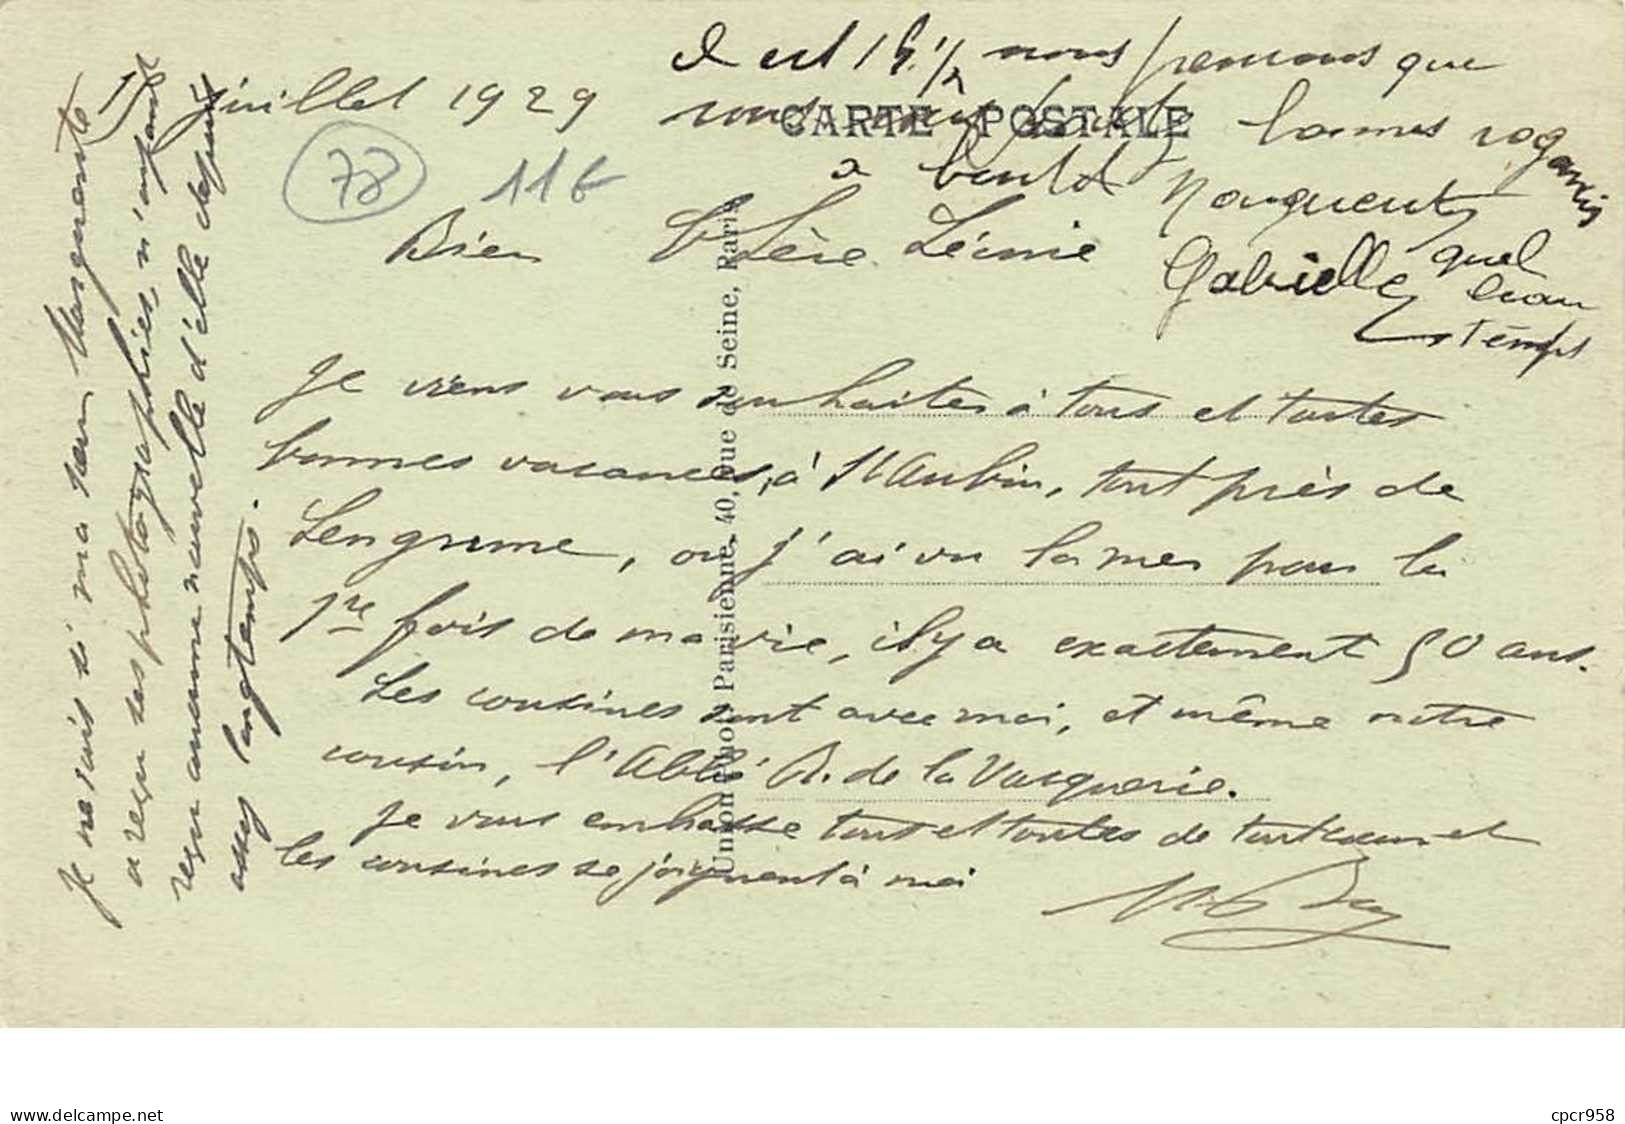 Il est 15h 1/2 nous pensons que
15 juillet 1929
vous bonnes
CARTE POSTALE
78
11 €
à
Bien Chère Léonie
Gabrielle quel
beau
temps
Je viens vous souhaiter à tous et toutes
bonnes vacances, à St Aubin, tout près de
Langrune, où j'ai vu la mer pour la
1re fois de ma vie, il y a exactement 50 ans.
Les cousines sont avec moi, et même notre
cousin, l'Abbé R. de la Vasquerie.
Je vous embrasse tous et toutes de tout cœur et
les cousines se joignent à moi
Je ne sais si ma sœur Marguerite
a reçu ses photographies, n'ayant
reçu aucune nouvelle d'elle depuis
assez longtemps.
Union Photo Parisienne, 40, rue de Seine, Paris
delcampe.net
cpcr958